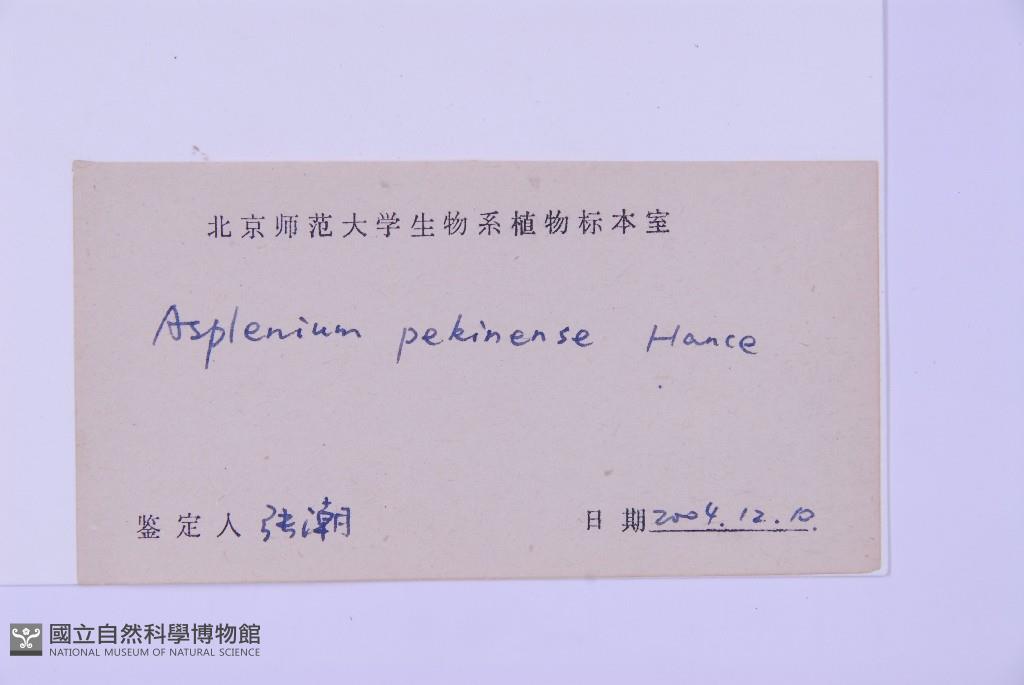 北京师范大学生物系植物标本室
Asplenium pekinense Hance
鉴定人 张潮 日期 2004.12.10.
國立自然科學博物館
NATIONAL MUSEUM OF NATURAL SCIENCE